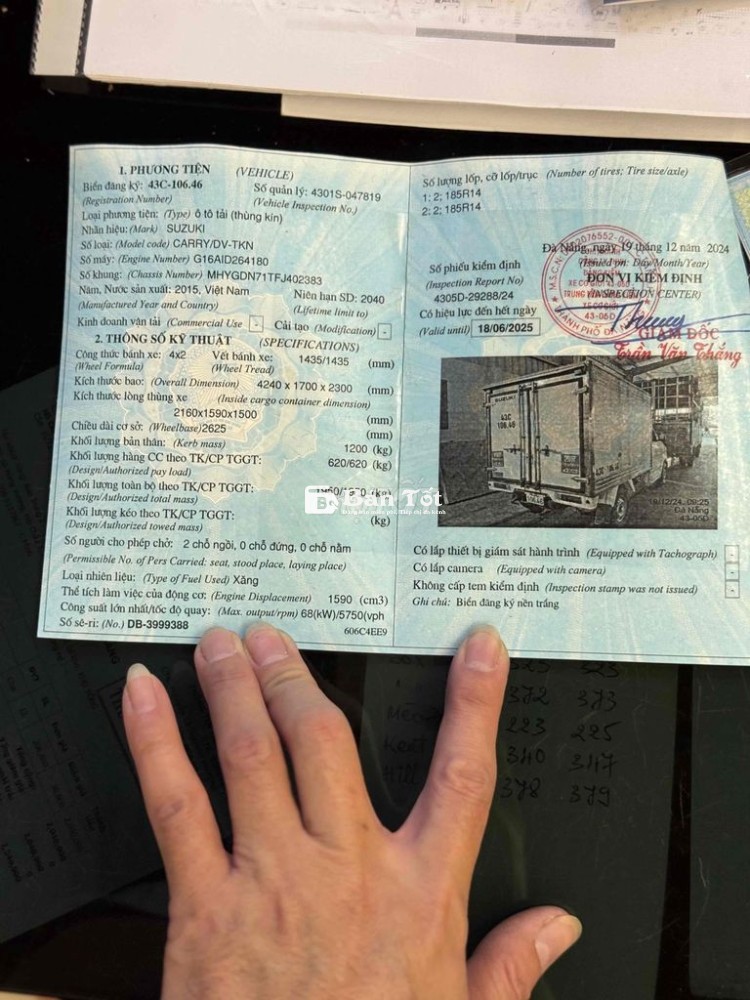 1. PHƯƠNG TIỆN (VEHICLE)
Biển đăng ký: 43C-106.46 Số quản lý: 4301S-047819
(Registration Number) (Vehicle Inspection No.)
Loại phương tiện: (Type) ô tô tải (thùng kín)
Nhãn hiệu: (Mark) SUZUKI
Số loại: (Model code) CARRY/DV-TKN
Số máy: (Engine Number) G16AID264180
Số khung: (Chassis Number) MHYGDN71TFJ402383
Năm, Nước sản xuất: 2015, Việt Nam Niên hạn SD: 2040
(Manufactured Year and Country) (Lifetime limit to)
Kinh doanh vận tải (Commercial Use) - Cải tạo (Modification) -
2. THÔNG SỐ KỸ THUẬT (SPECIFICATIONS)
Công thức bánh xe: 4x2 Vết bánh xe: 1435/1435 (mm)
(Wheel Formula) (Wheel Tread)
Kích thước bao: (Overall Dimension) 4240 x 1700 x 2300 (mm)
Kích thước lòng thùng xe (Inside cargo container dimension)
2160x1590x1500 (mm)
Chiều dài cơ sở: (Wheelbase) 2625 (mm)
Khối lượng bản thân: (Kerb mass) 1200 (kg)
Khối lượng hàng CC theo TK/CP TGGT: 620/620 (kg)
(Design/Authorized pay load)
Khối lượng toàn bộ theo TK/CP TGGT: (kg)
(Design/Authorized total mass)
Khối lượng kéo theo TK/CP TGGT: (kg)
(Design/Authorized towed mass)
Số người cho phép chở: 2 chỗ ngồi, 0 chỗ đứng, 0 chỗ nằm
(Permissible No. of Pers Carried: seat, stood place, laying place)
Loại nhiên liệu: (Type of Fuel Used) Xăng
Thể tích làm việc của động cơ: (Engine Displacement) 1590 (cm3)
Công suất lớn nhất/tốc độ quay: (Max. output/rpm) 68(kW)/5750(vph
Số sê-ri: (No.) DB-3999388 606C4EE9
Số lượng lốp, cỡ lốp/trục (Number of tires; Tire size/axle)
1; 2; 185R14
2; 2; 185R14
Đà Nẵng, ngày 19 tháng 12 năm 2024
(Issued on: Day/Month/Year)
Số phiếu kiểm định ĐƠN VỊ KIỂM ĐỊNH
(Inspection Report No) (INSPECTION CENTER)
4305D-29288/24
Có hiệu lực đến hết ngày
(Valid until) 18/06/2025
GIÁM ĐỐC
Trần Văn Thắng
43C
106.46
19/12/24 09:25
Đà Nẵng
43-05D
Bán Tốt
Có lắp thiết bị giám sát hành trình (Equipped with Tachograph) -
Có lắp camera (Equipped with camera) -
Không cấp tem kiểm định (Inspection stamp was not issued) -
Ghi chú: Biển đăng ký nền trắng
372 373
223 225
340 347
378 379